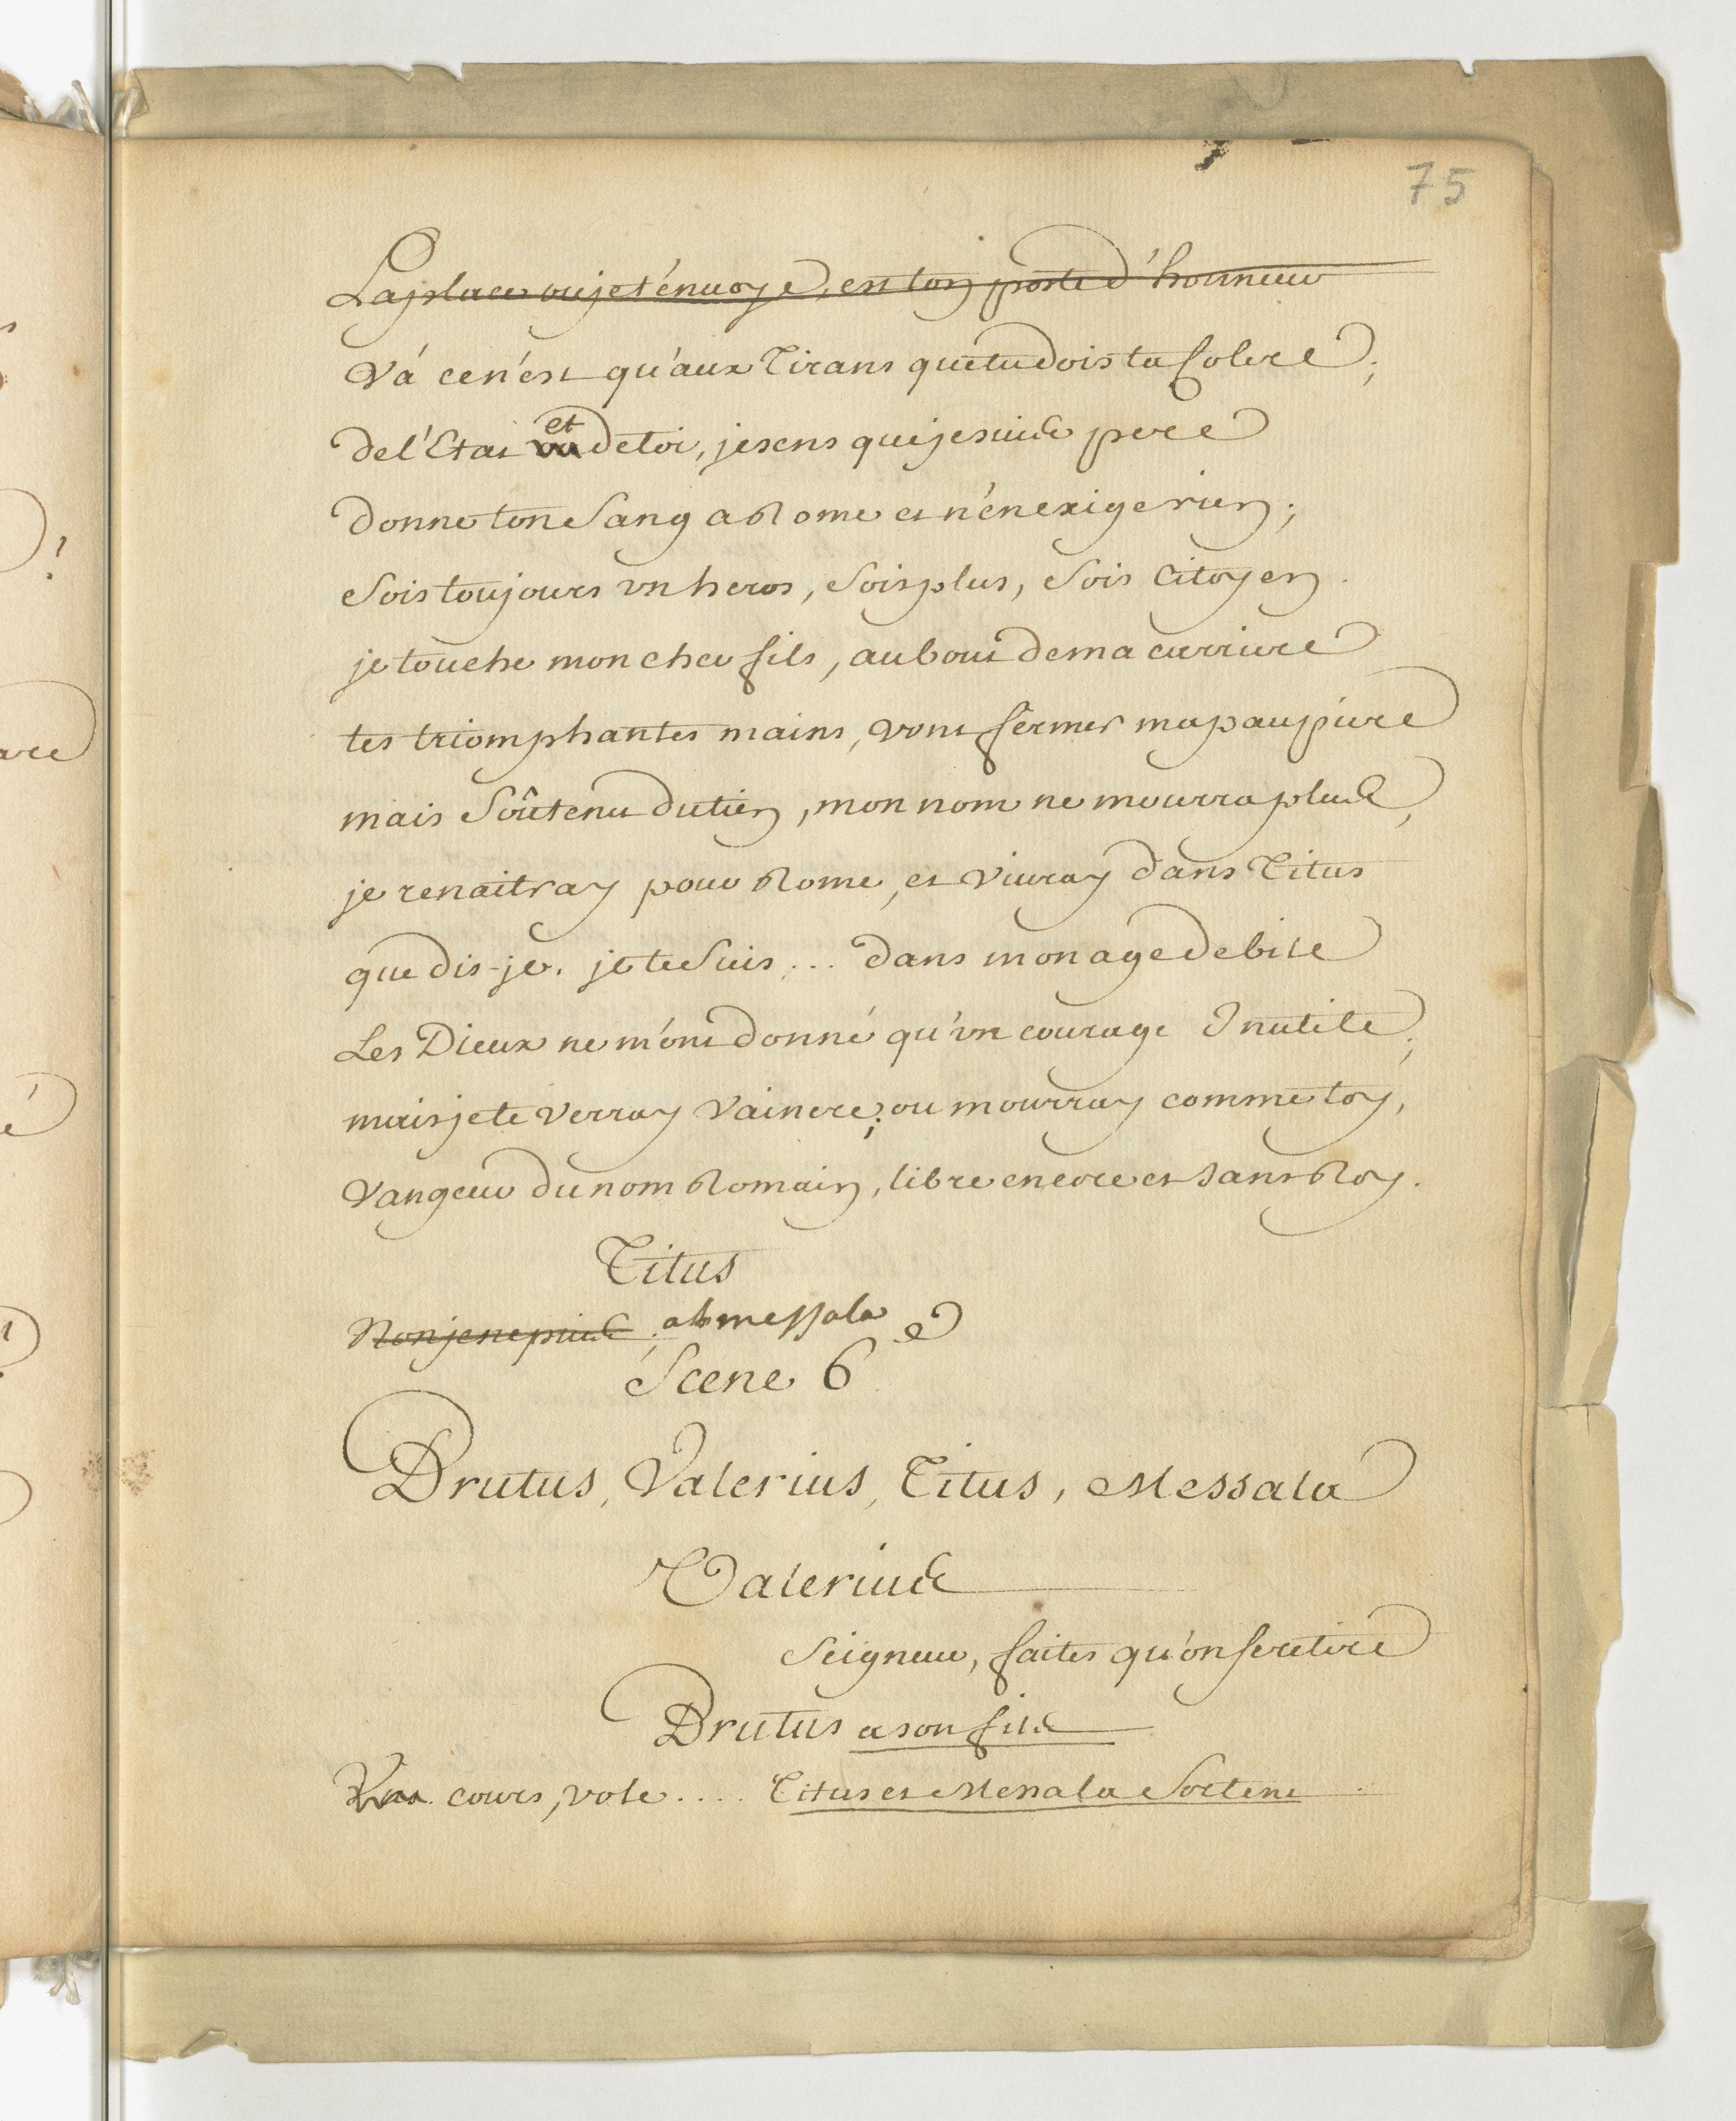 75
La place ou je t'énuoye, est ton poste d'honneur
Vá ce n'ést qu'aux Tirans que tu dois ta Colere;
de l'Etat et de toi, je sens que je suis pere
donne ton Sang a Rome et n'én exige rien;
Sois toujours vn heros, Sois plus, Sois Citoyen.
je touche mon cher fils, au bout de ma carriere
tes triomphantes mains, vont fermer ma paupiere
mais Soûtenu du tien, mon nom ne mourra plus,
je renaitray pour Rome, et viuray dans Titus
que dis-je. je te Suis... dans mon age debile
Les Dieux ne m'ont donné qu'vn courage Inutile;
mais je te verray vaincre; ou mourray comme toy,
vangeur du nom Romain, libre encore et sans Roy.
Titus
Non je ne puis, ah messala
Scene 6e
Brutus, Valerius, Titus, Messala
Valerius
Seigneur, faites qu'on se retire
Brutus a son fils
cours, vole.... Titus et Messala Sortent
are